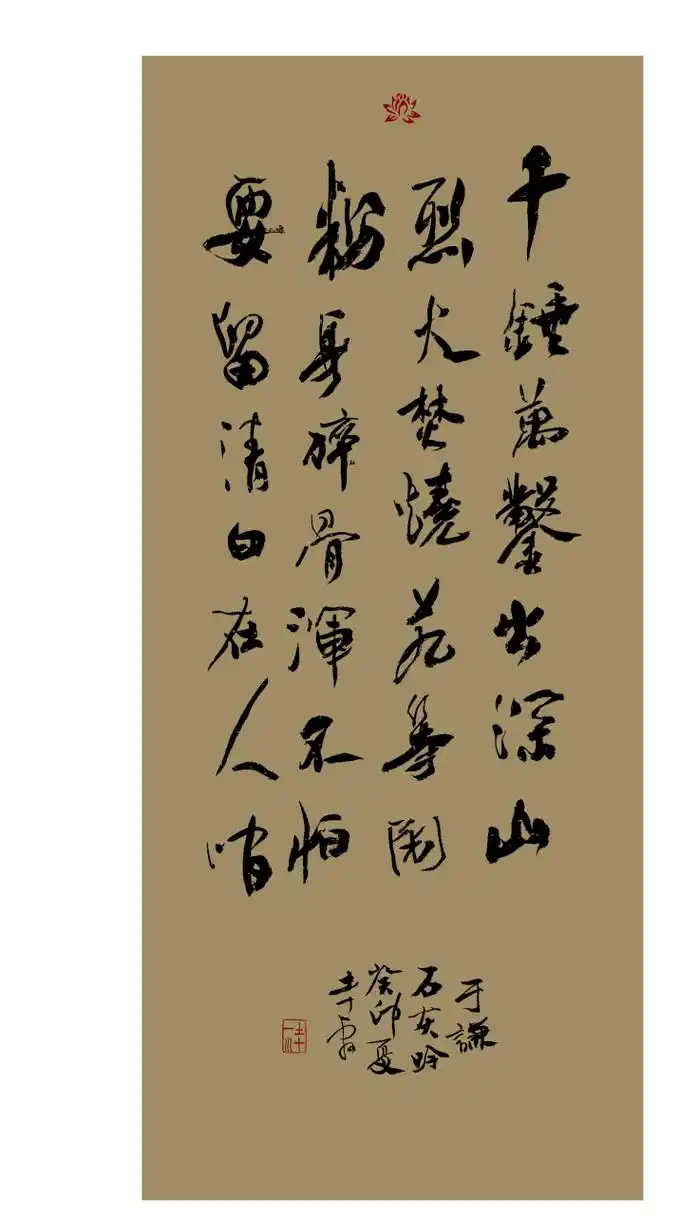 千錘萬鑿出深山
烈火焚燒若等閑
粉身碎骨渾不怕
要留清白在人啃
于謙
石灰吟
癸卯夏